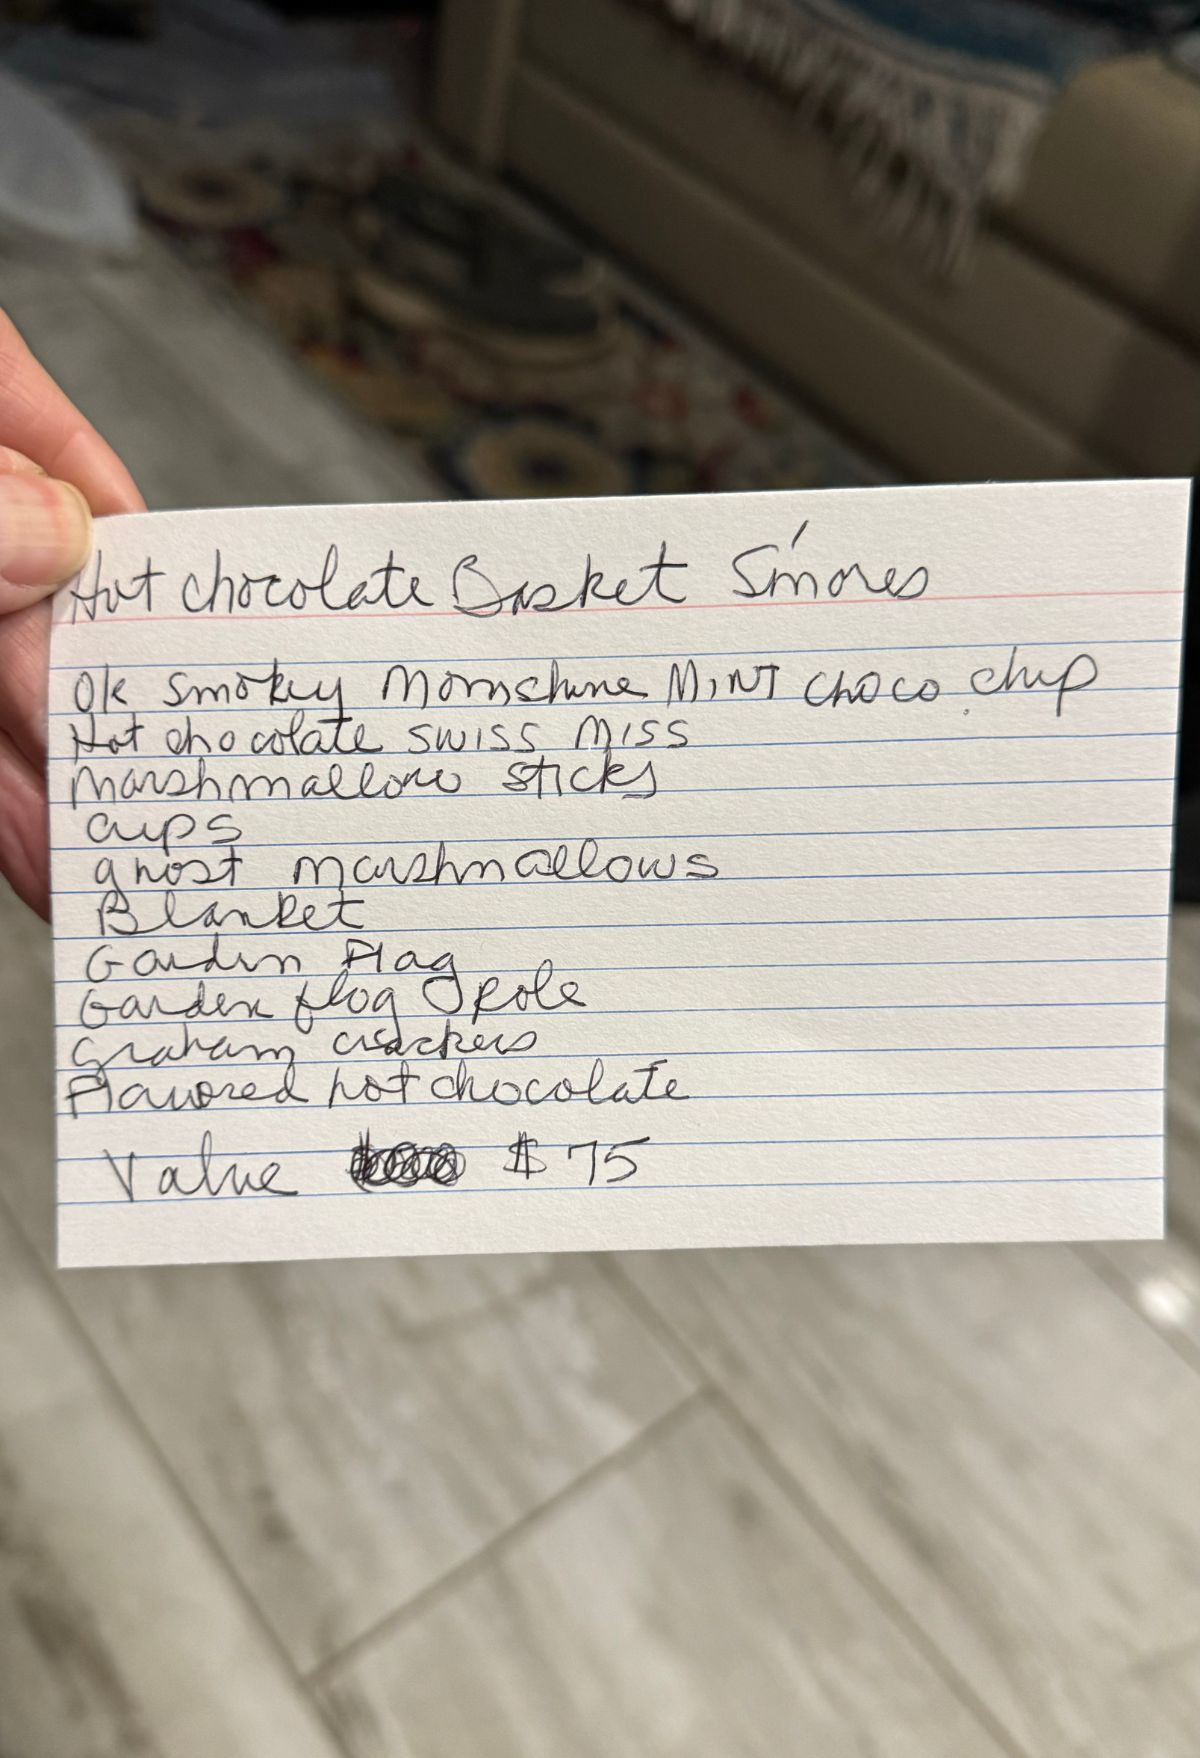 Hot chocolate Basket S'mores
Ole Smokey Moonshine MINT CHOCO. chip
Hot chocolate SWISS MISS
Marshmallow sticks
cups
ghost marshmallows
Blanket
Garden Flag
Garden flag Pole
Graham crackers
Flavored hot chocolate
Value $75